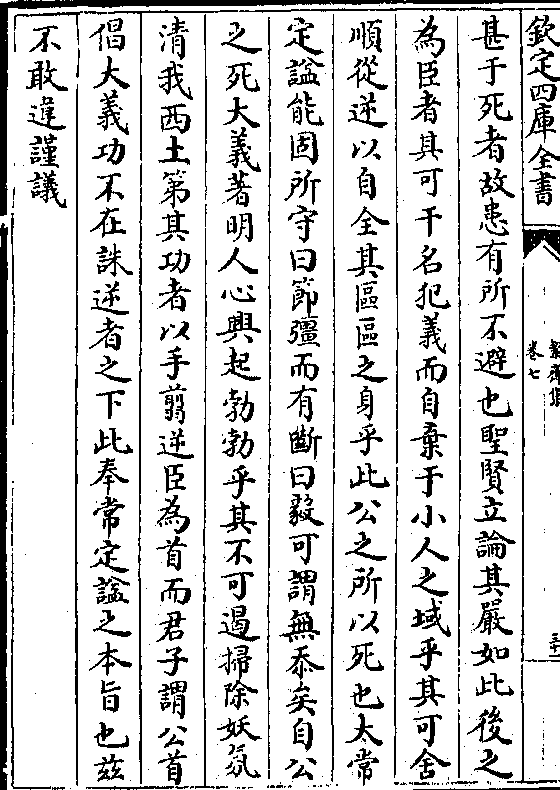 欽定四庫全書
卷七
甚于死者故患有所不避也聖賢立論其嚴如此後之
為臣者其可干名犯義而自棄于小人之域乎其可舍
順從逆以自全其區區之身乎此公之所以死也太常
定諡能固所守曰節彊而有斷曰毅可謂無忝矣自公
之死大義著明人心興起勃勃乎其不可遏掃除妖氛
清我西土第其功者以手翦逆臣為首而君子謂公首
倡大義功不在誅逆者之下此奉常定諡之本旨也茲
不敢違謹議